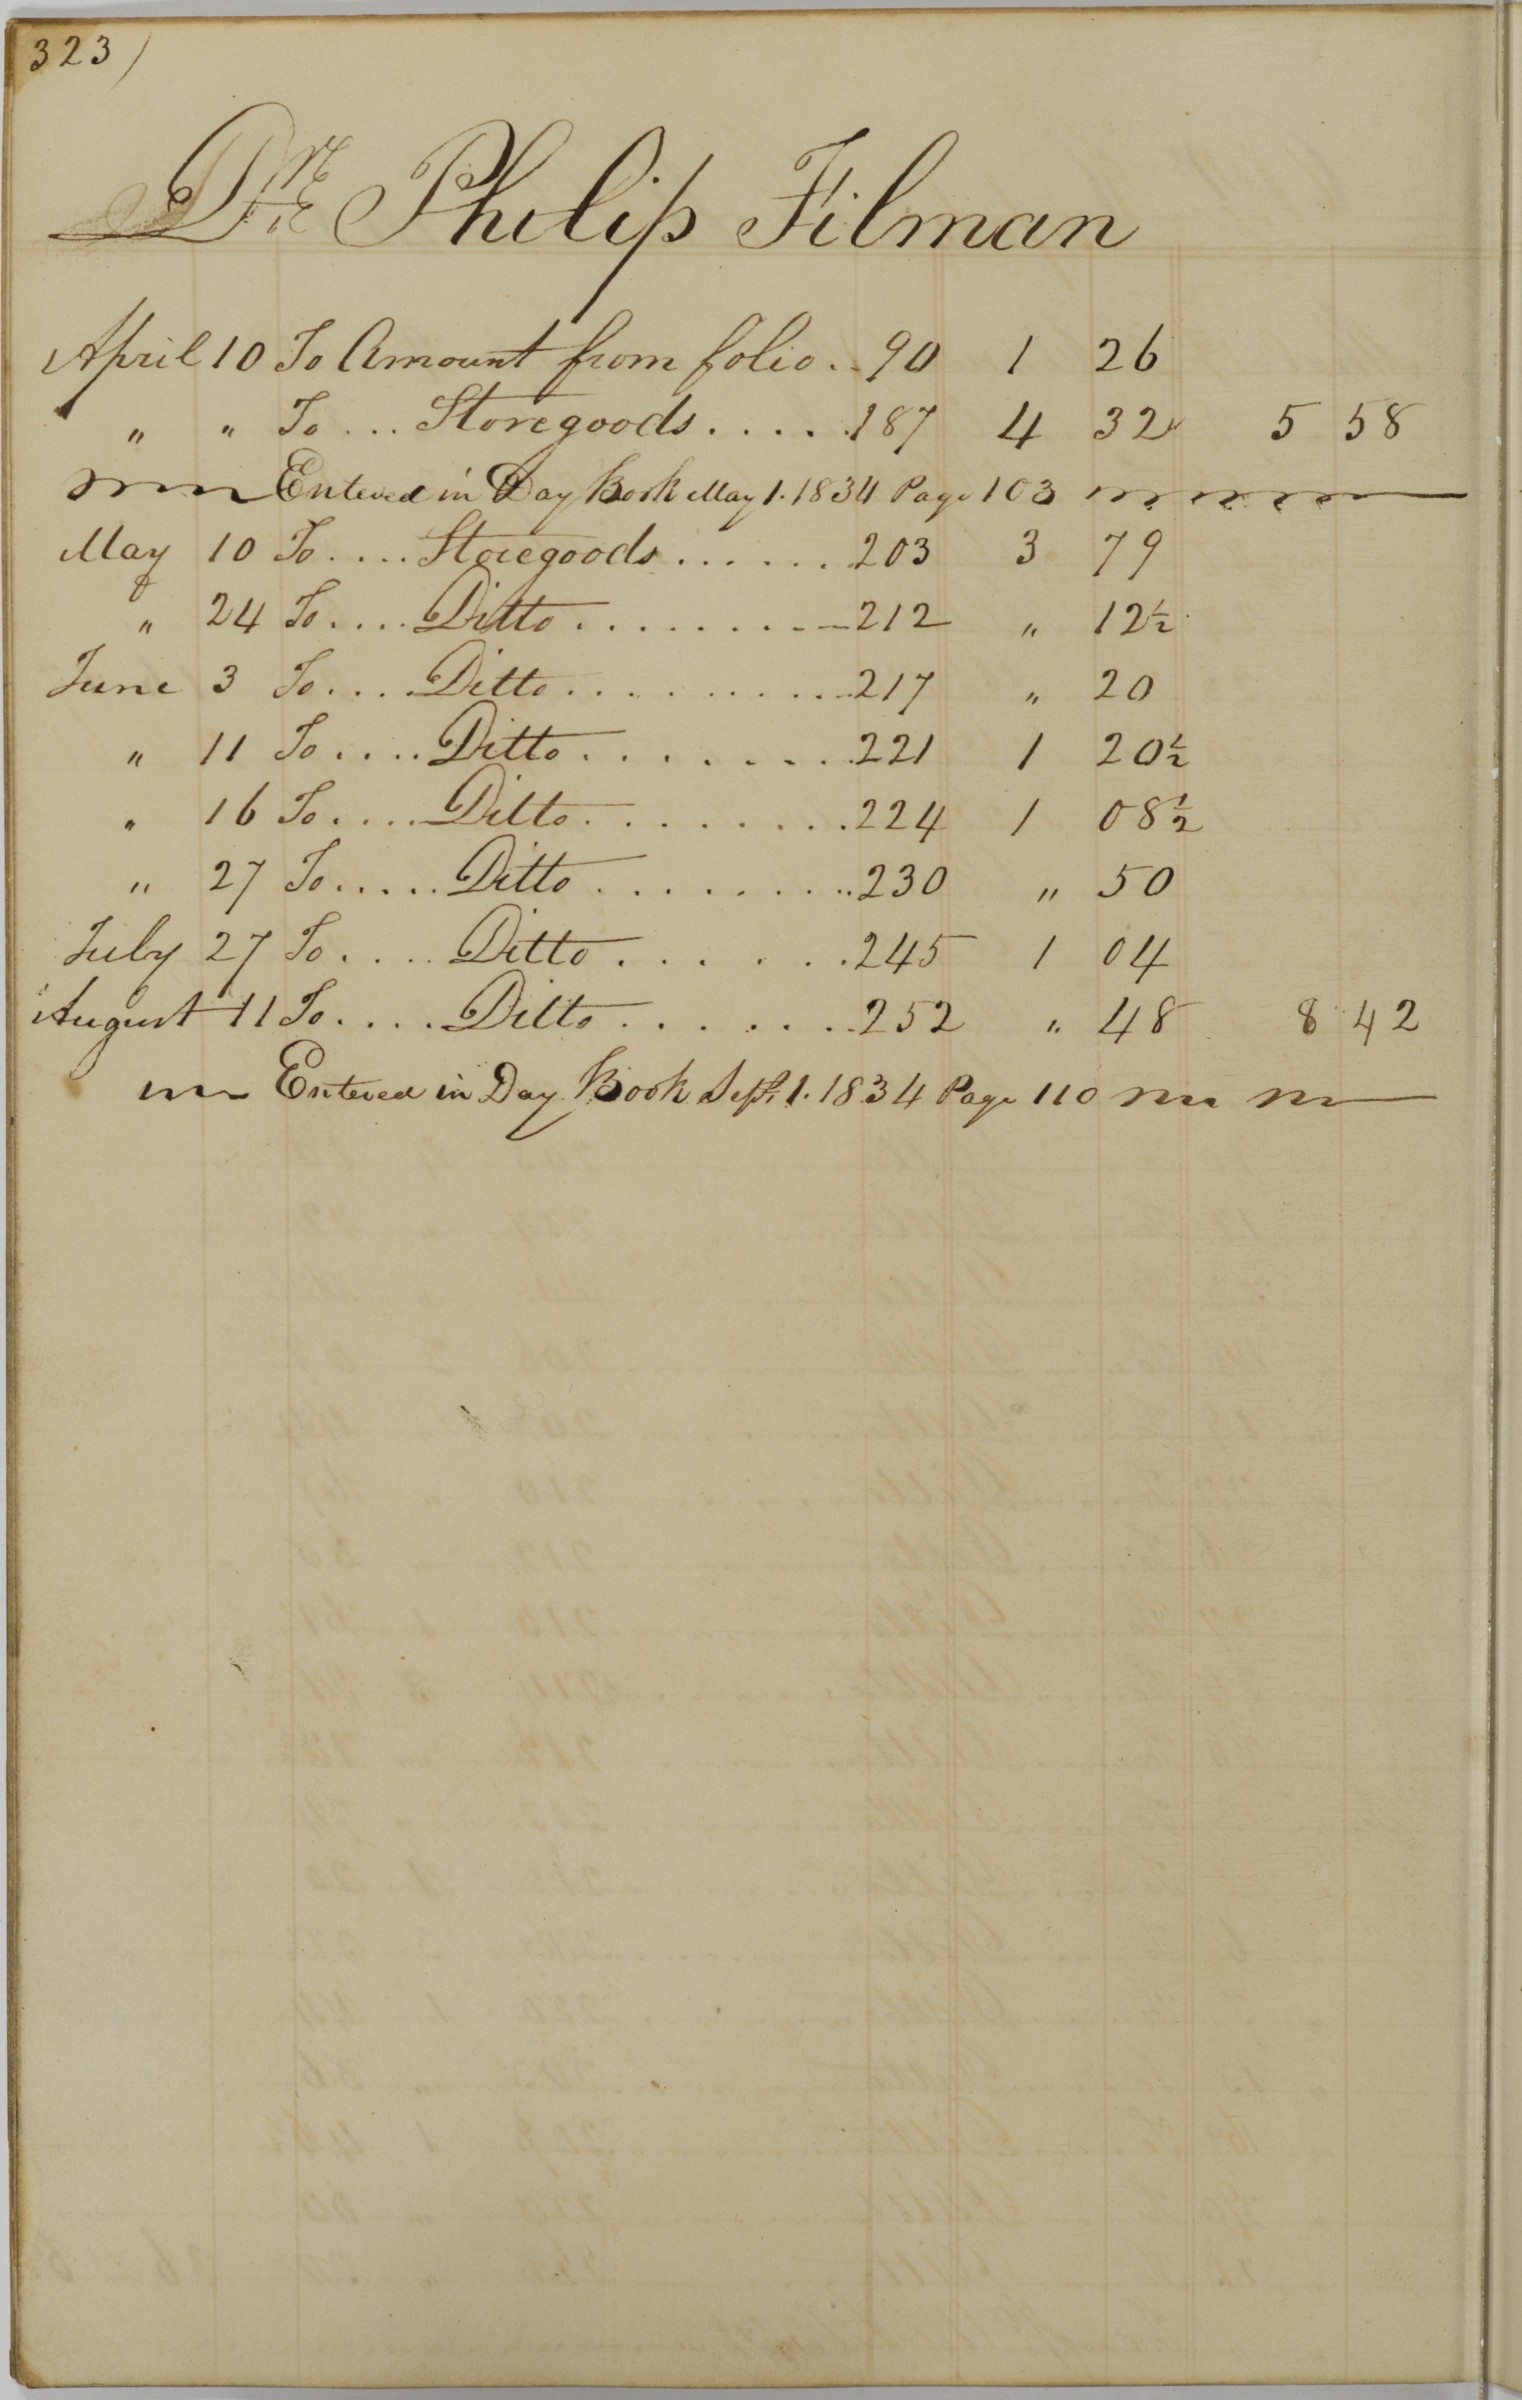 323)
Dr. Philip Filman
April 10 To Amount from folio .. 90 1 26
" " To ... Storegoods ..... 187 4 32 5 58
Entered in Day Book May 1. 1834 Page 103
May 10 To .... Storegoods ...... 203 3 79
" 24 To .... Ditto ......... 212 " 12½
June 3 To .... Ditto .......... 217 " 20
" 11 To .... Ditto ........ 221 1 20½
" 16 To .... Ditto ......... 224 1 08½
" 27 To ..... Ditto ......... 230 " 50
July 27 To .... Ditto ...... 245 1 04
August 11 To .... Ditto ...... 252 " 48 8 42
Entered in Day Book Sept. 1. 1834 Page 110